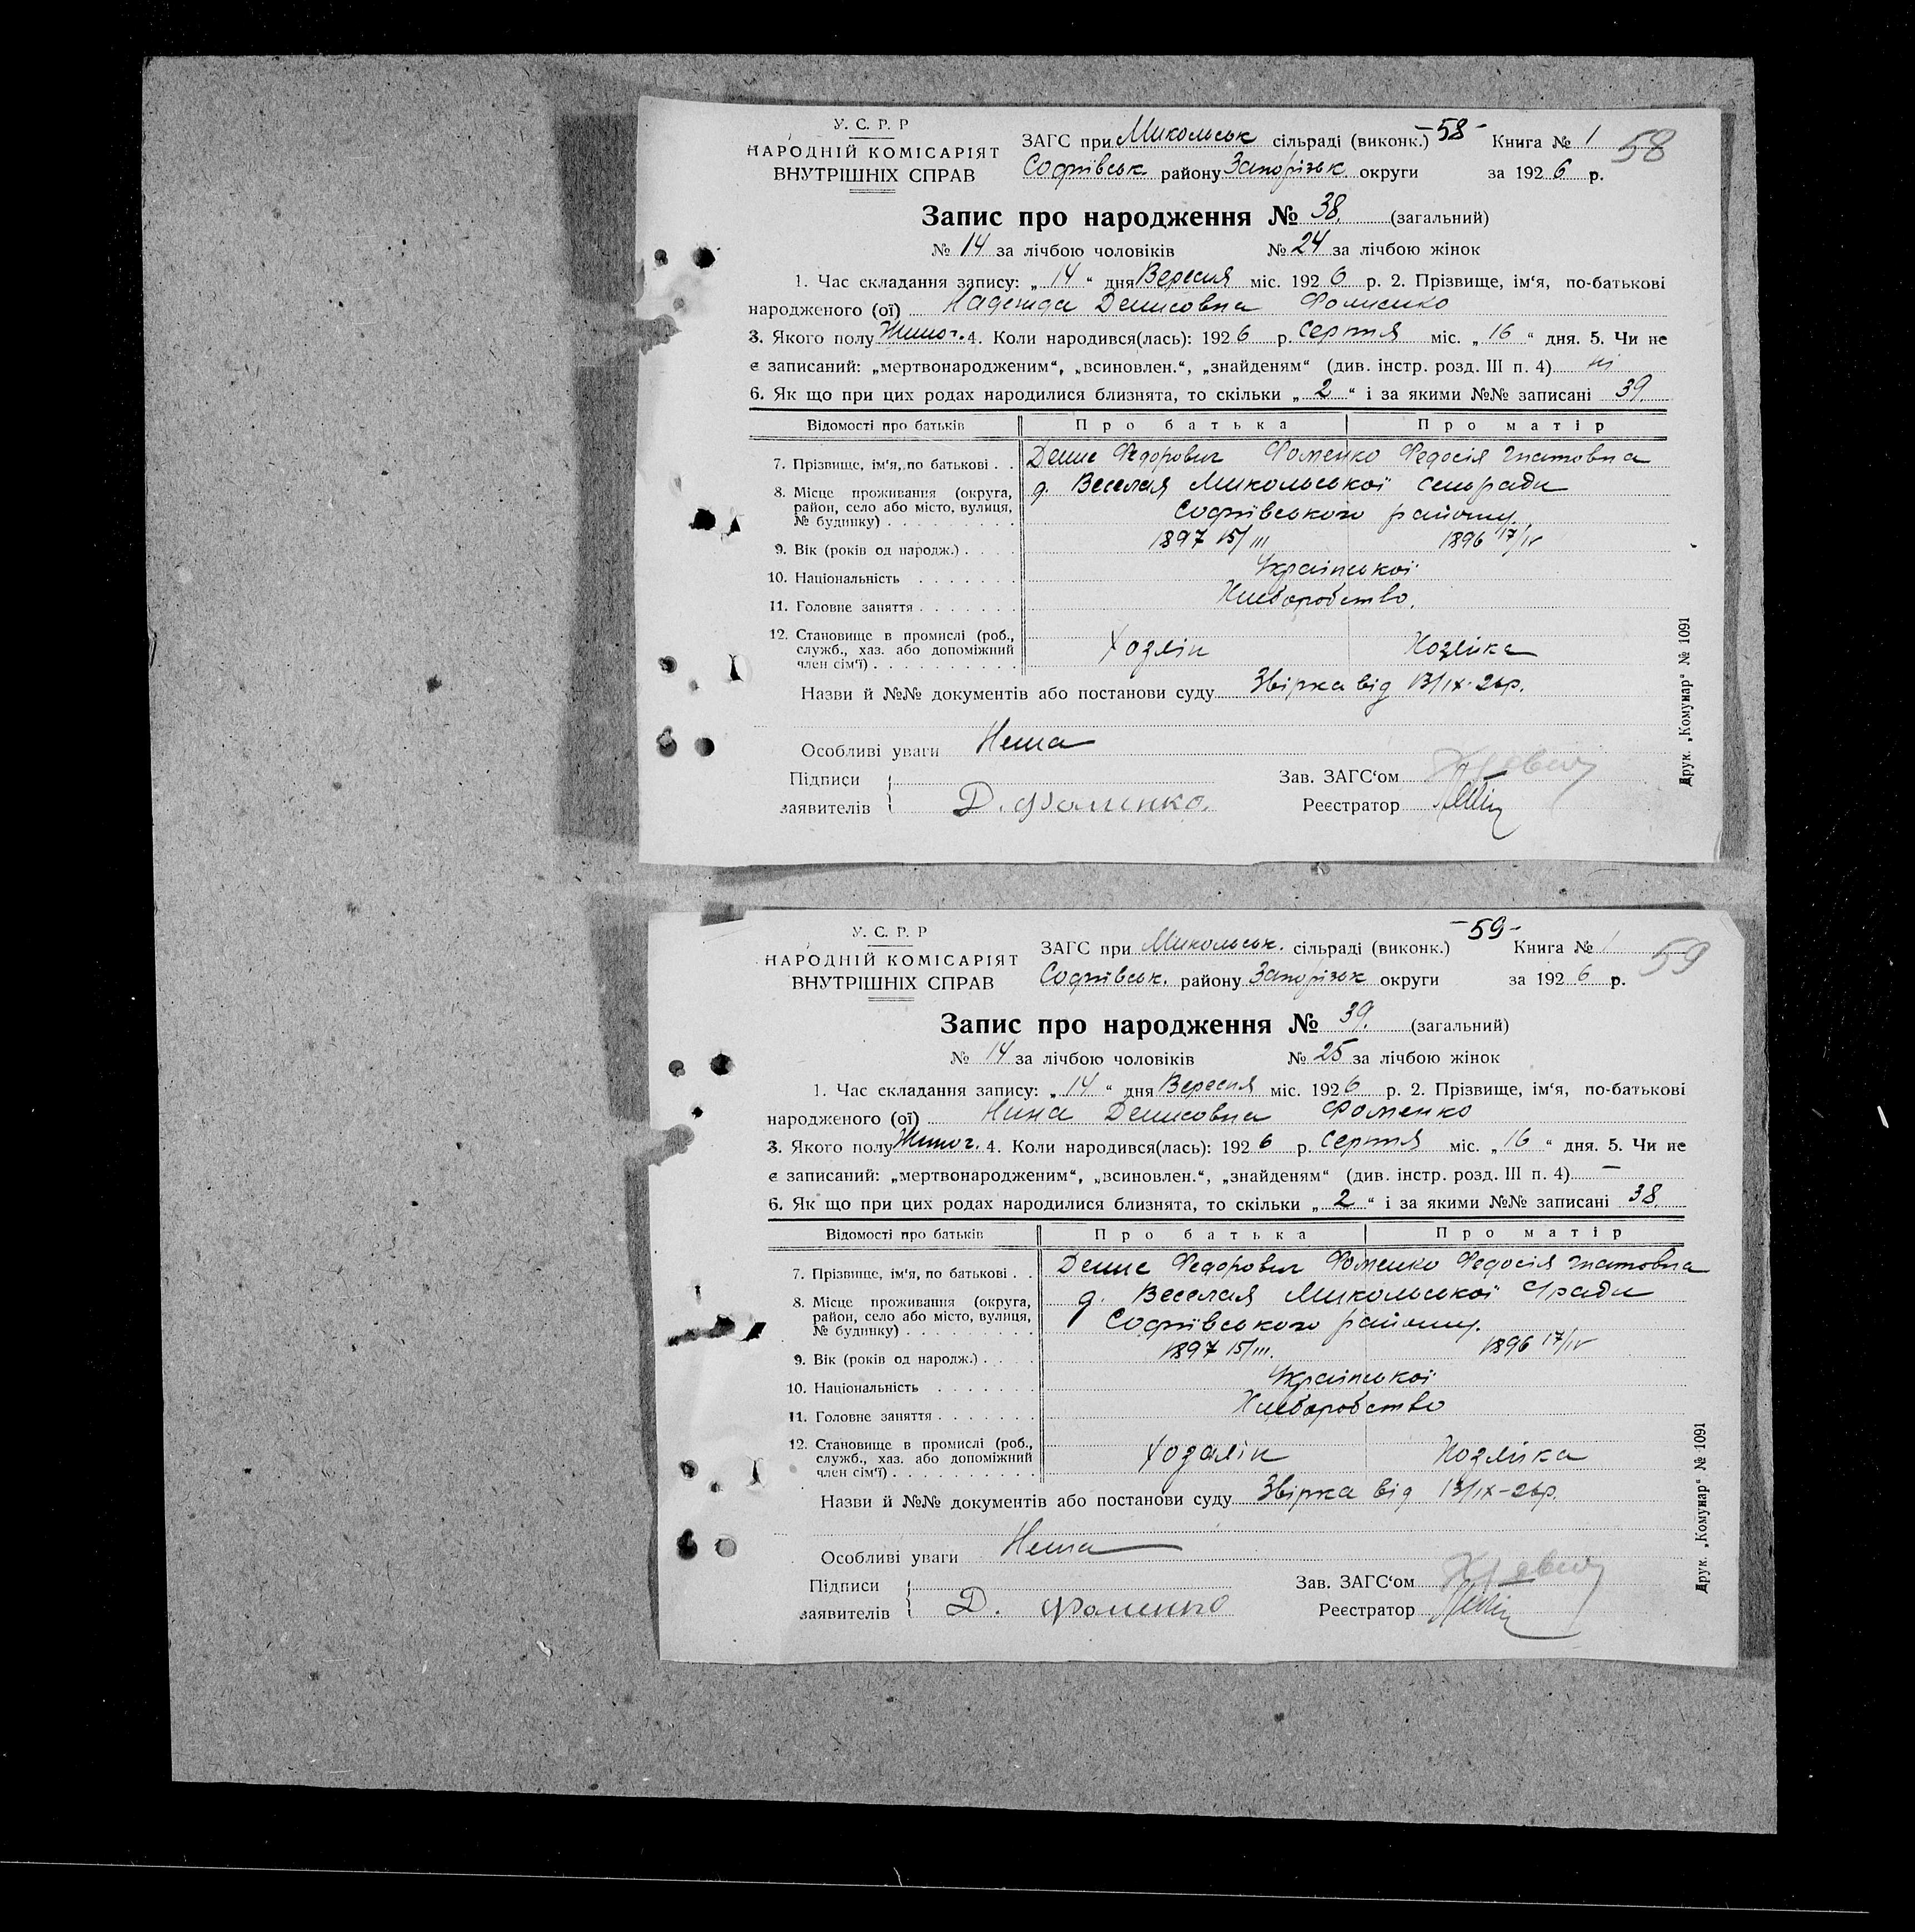 У. С. Р. Р
НАРОДНІЙ КОМІСАРІЯТ
ВНУТРІШНІХ СПРАВ
ЗАГС при Микольськ сільраді (виконк.) -58- Книга № 1 58
Софіївськ. району Запорізьк. округи за 1926 р.
Запис про народження № 38. (загальний)
№ 14 за лічбою чоловіків № 24 за лічбою жінок
1. Час складання запису: „14“ дня Вересня міс. 1926 р. 2. Прізвище, ім'я, по-батькові
народженого (ої) Надежда Денисовна Фоменко
3. Якого полу Жиноч. 4. Коли народився(лась): 1926 р. Серпня міс. „16“ дня. 5. Чи не
є записаний: „мертвонародженим“, „всиновлен.“, „знайденям“ (див. інстр. розд. III п. 4) ні
6. Як що при цих родах народилися близнята, то скільки „2“ і за якими №№ записані 39.
Відомості про батьків Про батька Про матір
7. Прізвище, ім'я, по батькові . . Денис Федорович Фоменко Федосія Гнатовна
8. Місце проживання (округа, д. Веселая Микольської сельради
район, село або місто, вулиця, Софіївського району.
№ будинку) . . . . . . . . .
9. Вік (років од народж.) . . . . 1897 15/III 1896 17/IV
10. Національність . . . . . . . Української
11. Головне заняття . . . . . . . Хлеборобство.
12. Становище в промислі (роб.,
служб., хаз. або допоміжний Хозяін Хозяйка
член сім'ї) . . . . . . . . . .
Назви й №№ документів або постанови суду Звірка від 13/IX-26р.
Особливі уваги Нема
Підписи Зав. ЗАГС'ом
заявителів Д. Фоменко. Реєстратор
Друк. „Комунар“ № 1091
У. С. Р. Р
НАРОДНІЙ КОМІСАРІЯТ
ВНУТРІШНІХ СПРАВ
ЗАГС при Микольськ. сільраді (виконк.) -59- Книга № 1 59
Софіївськ. району Запорізьк округи за 1926 р.
Запис про народження № 39. (загальний)
№ 14 за лічбою чоловіків № 25 за лічбою жінок
1. Час складання запису: „14“ дня Вересня міс. 1926 р. 2. Прізвище, ім'я, по-батькові
народженого (ої) Нина Денисовна Фоменко
3. Якого полу Жиноч. 4. Коли народився(лась): 1926 р. Серпня міс. „16“ дня. 5. Чи не
є записаний: „мертвонародженим“, „всиновлен.“, „знайденям“ (див. інстр. розд. III п. 4) —
6. Як що при цих родах народилися близнята, то скільки „2“ і за якими №№ записані 38.
Відомості про батьків Про батька Про матір
7. Прізвище, ім'я, по батькові . . Денис Федорович Фоменко Федосія Гнатовна
8. Місце проживання (округа, д. Веселая Микольської С/ради
район, село або місто, вулиця, Софіївського району.
№ будинку) . . . . . . . . .
9. Вік (років од народж.) . . . . 1897 15/III. 1896 17/IV
10. Національність . . . . . . . Української
11. Головне заняття . . . . . . . Хлеборобство
12. Становище в промислі (роб.,
служб., хаз. або допоміжний Хозяін Хозяйка
член сім'ї) . . . . . . . . . .
Назви й №№ документів або постанови суду Звірка від 13/IX-26р.
Особливі уваги Нема
Підписи Зав. ЗАГС'ом
заявителів Д. Фоменко Реєстратор
Друк. „Комунар“ № 1091